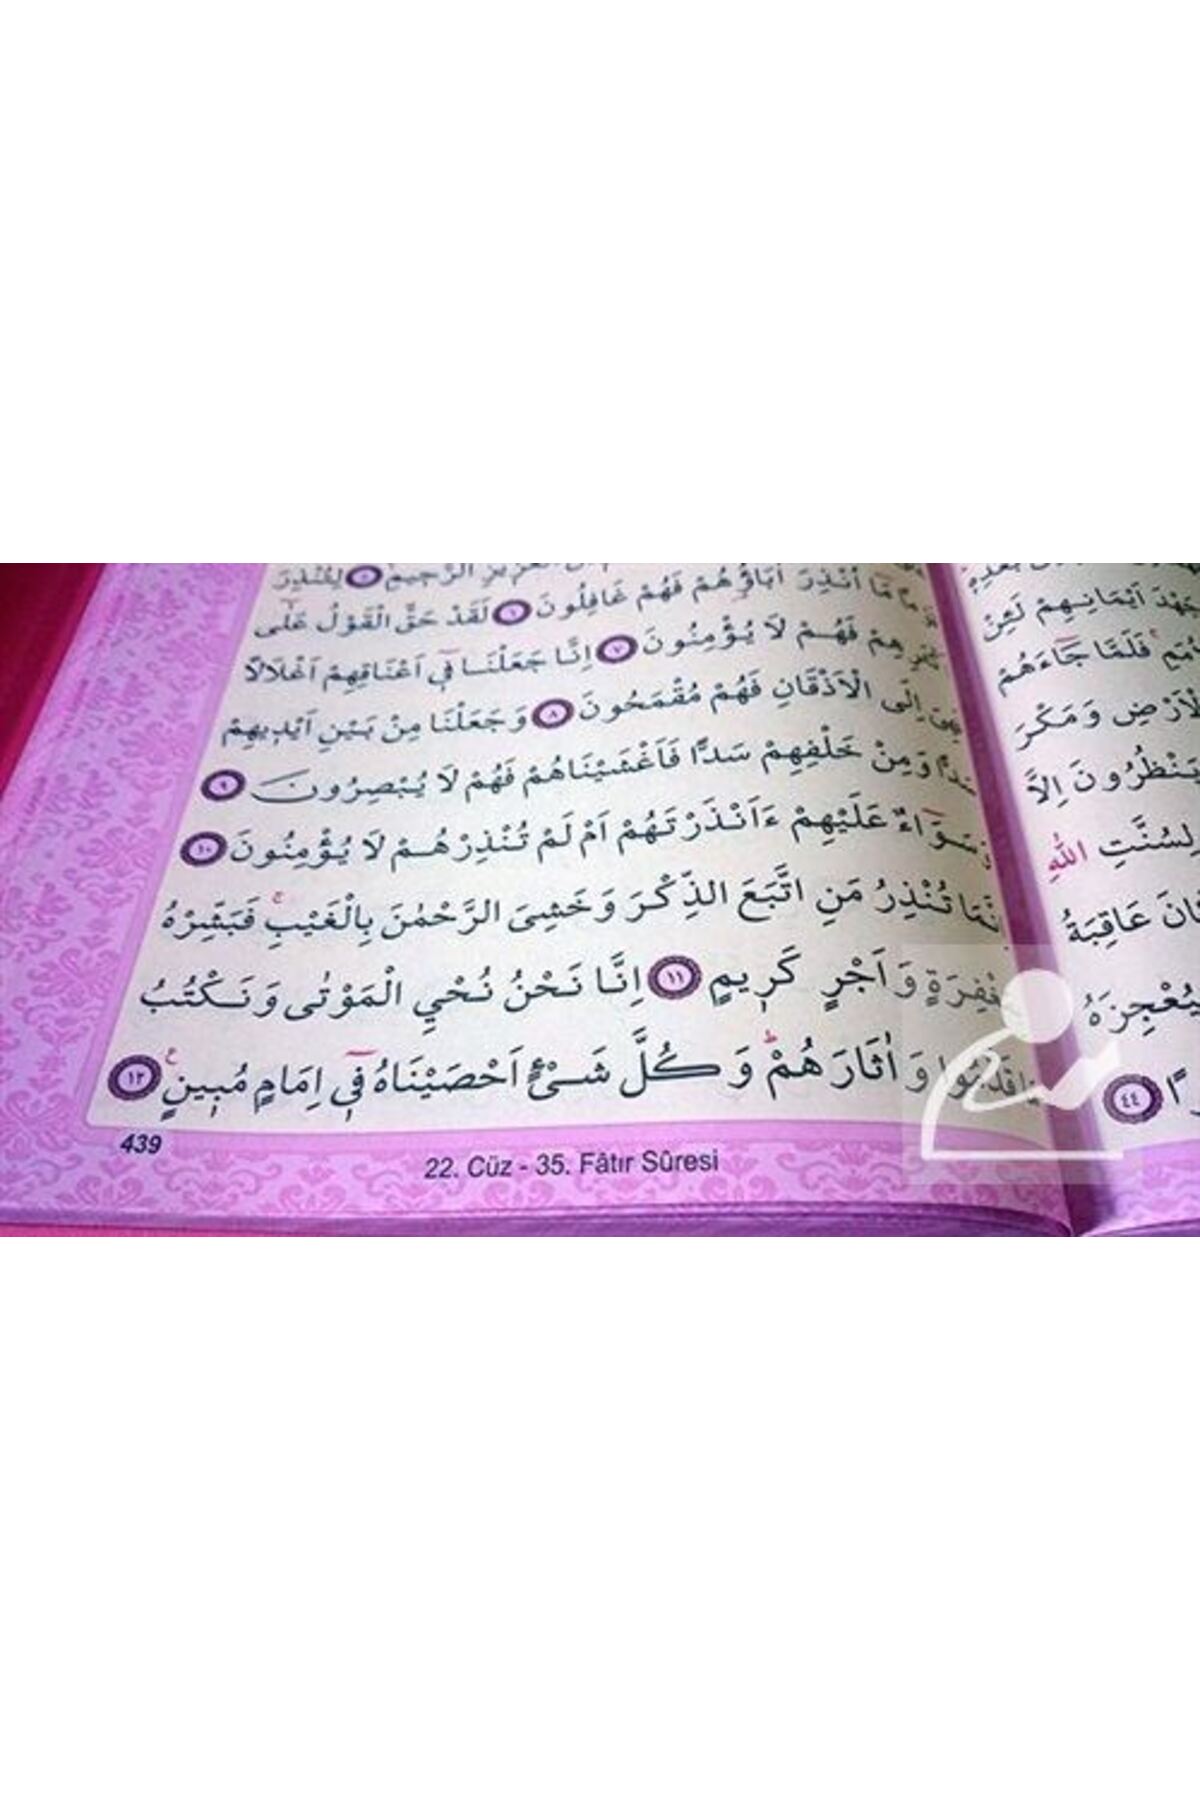 الرَّحِيمِ ٥ لِتُنْذِرَ
مَا اُنْذِرَ اٰبَاؤُهُمْ فَهُمْ غَافِلُونَ ٦ لَقَدْ حَقَّ الْقَوْلُ عَلٰٓى
فَهُمْ لَا يُؤْمِنُونَ ٧ اِنَّا جَعَلْنَا فٖٓى اَعْنَاقِهِمْ اَغْلَالًا
اِلَى الْاَذْقَانِ فَهُمْ مُقْمَحُونَ ٨ وَجَعَلْنَا مِنْ بَيْنِ اَيْدٖيهِمْ
وَمِنْ خَلْفِهِمْ سَدًّا فَاَغْشَيْنَاهُمْ فَهُمْ لَا يُبْصِرُونَ ٩
وَسَوَٓاءٌ عَلَيْهِمْ ءَاَنْذَرْتَهُمْ اَمْ لَمْ تُنْذِرْهُمْ لَا يُؤْمِنُونَ ١٠
تُنْذِرُ مَنِ اتَّبَعَ الذِّكْرَ وَخَشِىَ الرَّحْمٰنَ بِالْغَيْبِۚ فَبَشِّرْهُ
وَاَجْرٍ كَرٖيمٍ ١١ اِنَّا نَحْنُ نُحْيِ الْمَوْتٰى وَنَكْتُبُ
وَاٰثَارَهُمْۜ وَكُلَّ شَىْءٍ اَحْصَيْنَاهُ فٖٓى اِمَامٍ مُبٖينٍ ١٢
439
22. Cüz - 35. Fâtır Sûresi
جَهْدَ اَيْمَانِهِمْ لَئِنْ
فَلَمَّا جَٓاءَهُمْ
وَمَكْرَ
يَنْظُرُونَ اِلَّا
لِسُنَّتِ اللّٰهِ
عَاقِبَةُ
٤٤